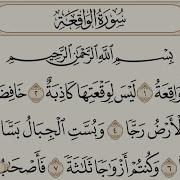 سُورَةُ الْوَاقِعَةِ
بِسْمِ اللَّهِ الرَّحْمَٰنِ الرَّحِيمِ
وَاقِعَةُ ١ لَيْسَ لِوَقْعَتِهَا كَاذِبَةٌ ٢ خَافِضَ
لْأَرْضُ رَجًّا ٤ وَبُسَّتِ الْجِبَالُ بَسًّا
٦ وَكُنتُمْ أَزْوَاجًا ثَلَاثَةً ٧ فَأَصْحَابُ